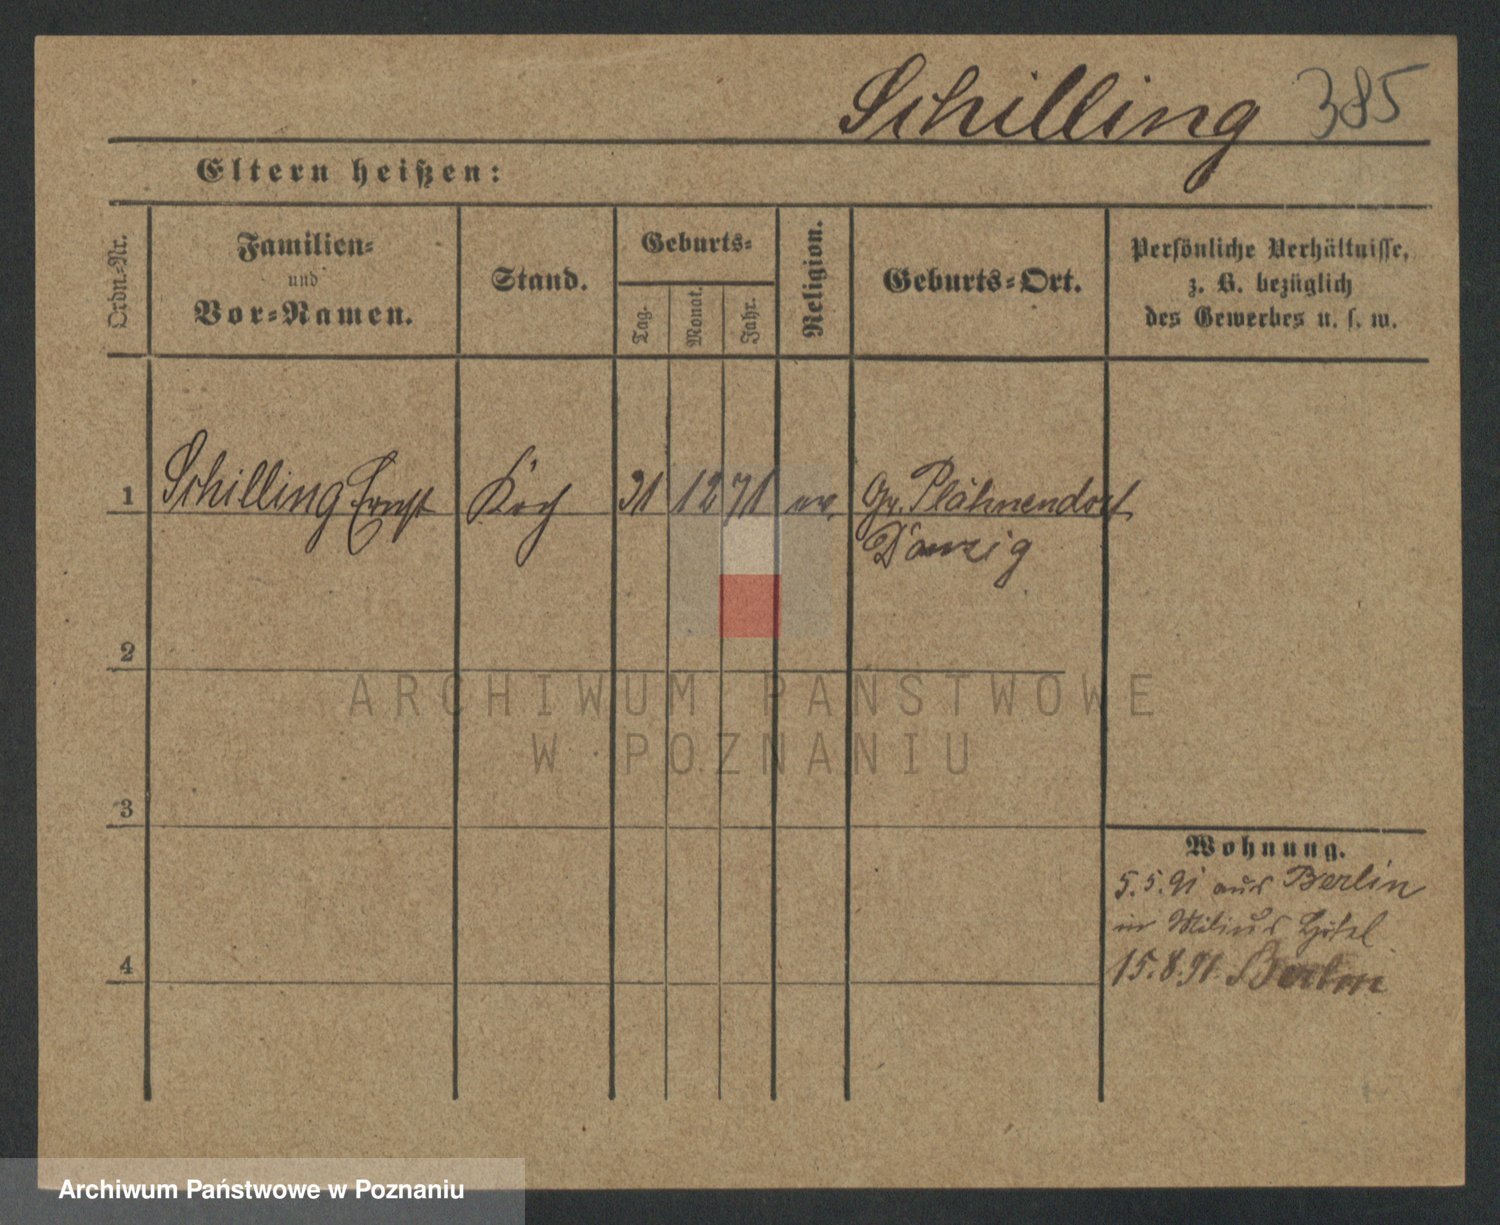 Schilling 385
Eltern heißen:
Ordn.=Nr.
Familien=
und
Vor=Namen.
Stand.
Geburts=
Tag.
Monat.
Jahr.
Religion.
Geburts=Ort.
Persönliche Verhältnisse,
z. B. bezüglich
des Gewerbes u. s. w.
1 Schilling Ernst Koch 31 12 71 ev. Gr. Plähnendorf
Danzig
2
3
4
Wohnung.
5.5.91 aus Berlin
in Milius Hotel
15.8.91 Berlin
ARCHIWUM PAŃSTWOWE
W POZNANIU
Archiwum Państwowe w Poznaniu